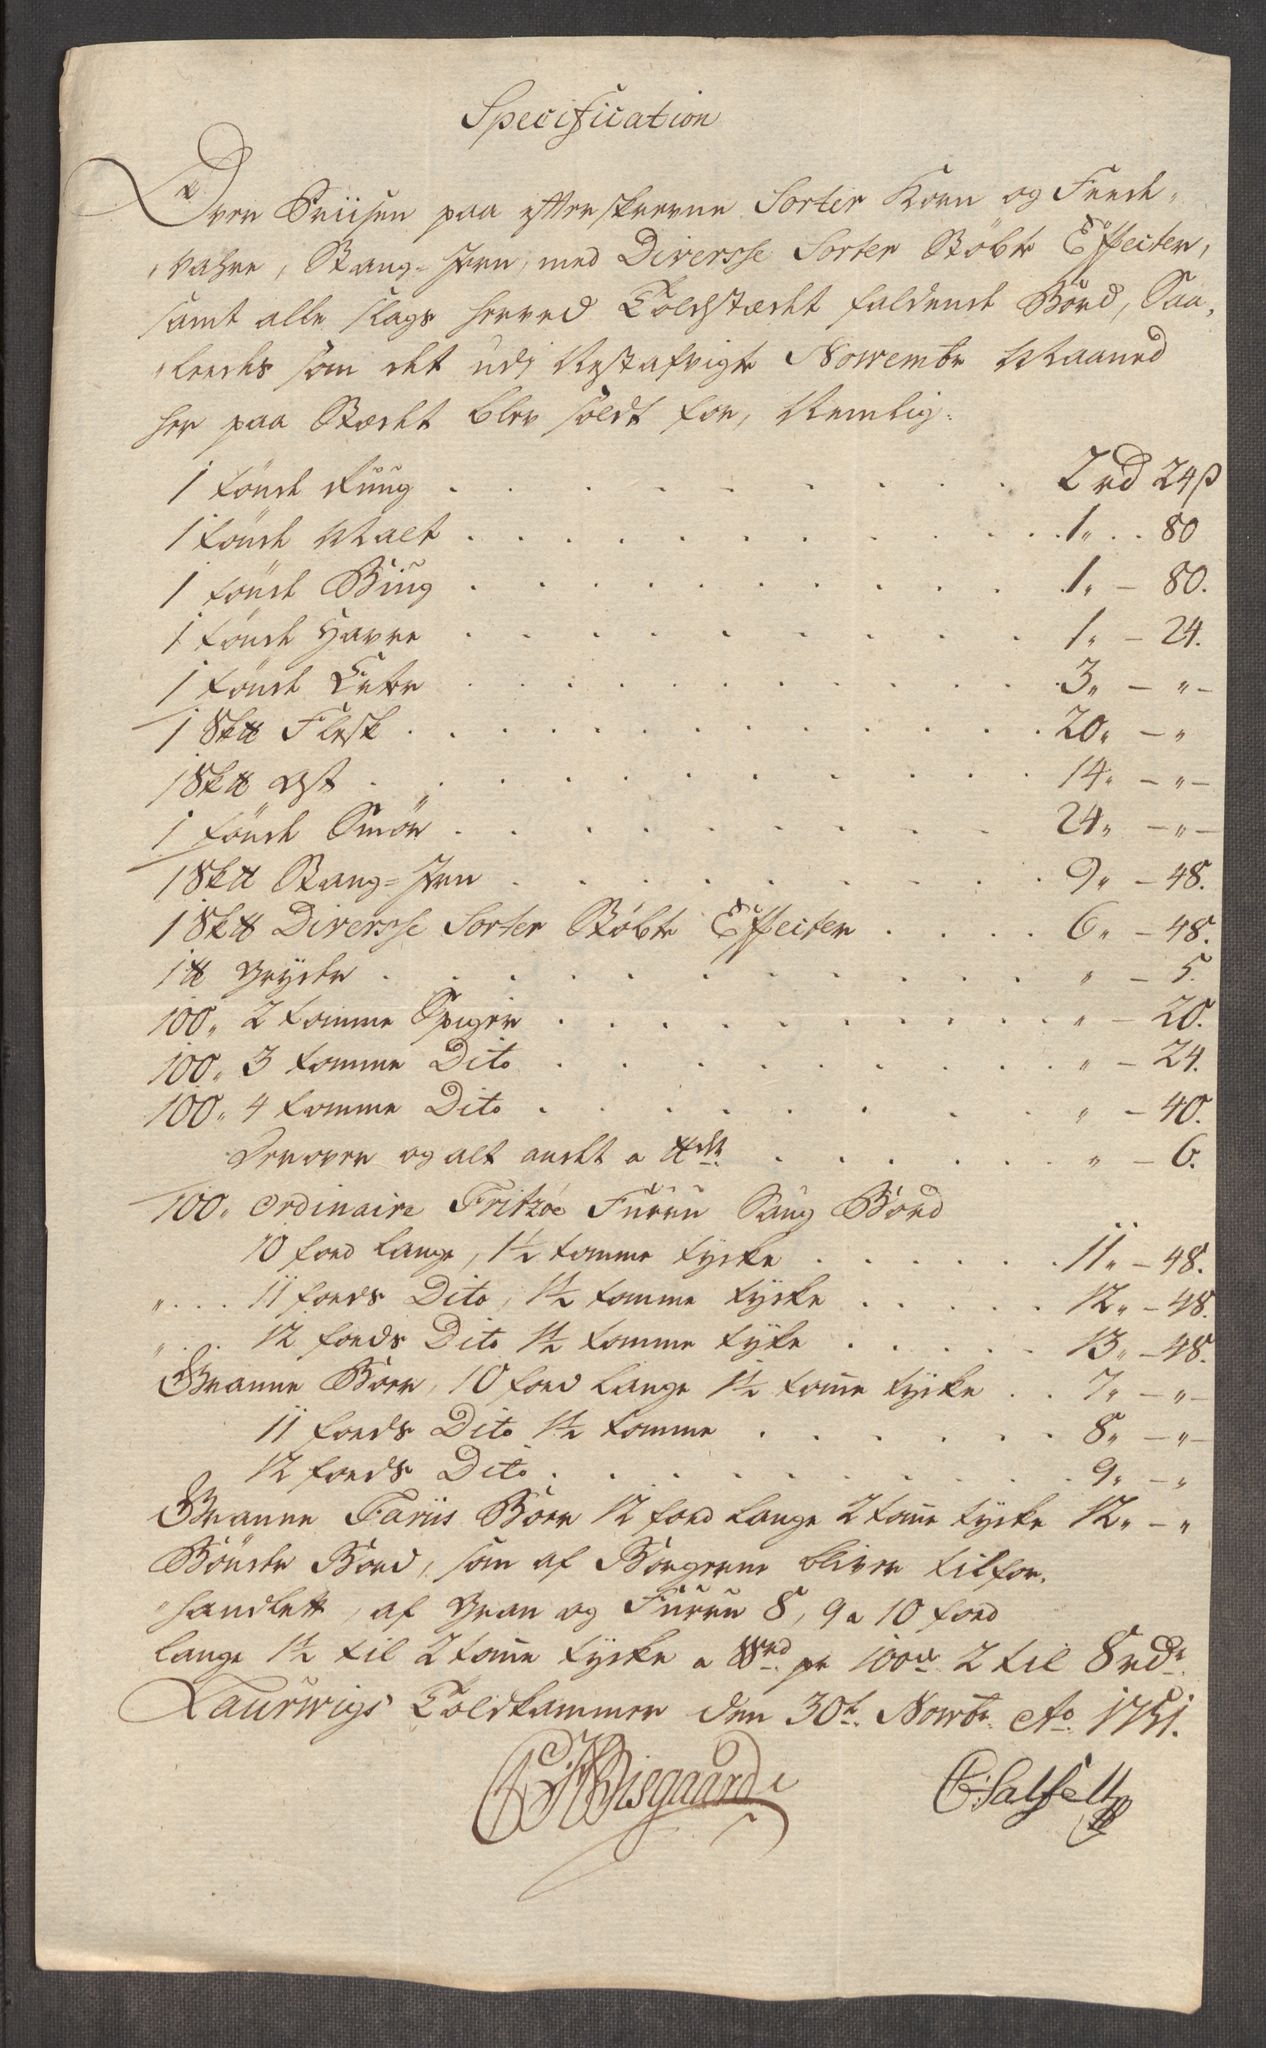 Specification
Over Priisen paa efterskrevne Sorter Korn og Feede-
vahre, Stang-Jern, med Diversse Sorter Støbte Effecter,
samt alle slags herved Toldstædet faldende Bord, Saa-
leedes som det udj Nestafvigte Novembr Maaned
her paa Stædet blev soldt for, Nemlig.
1 tönde Rúúg . . . 2 rd 24 ß
1 tönde Malt . . . 1„ . . 80
1 tönde Biúg . . . 1„ — 80.
1 tönde Havre . . . 1„ — 24.
1 tönde Erter . . . 3„ — „ —
1 Sk℔ Flesk . . . 20„ — „
1 Sk℔ Ost . . . 14„ — „ —
1 tönde Smör . . . 24„ — „ —
1 Sk℔ Stang-Jern . . . 9„ — 48.
1 Sk℔ Diversse Sorter Støbte Effecter . . . 6„ — 48.
1 ℔ Gryder . . . „ — 5.
100„ 2 tomme Spiger . . . „ — 20.
100„ 3 tomme Dito . . . „ — 24.
100„ 4 tomme Dito . . . „ — 40.
Derover og alt andet a ℔det . . . „ — 6.
100„ ordinaire Fritzøe Fúrrú Saug Bord
10 foed lange, 1½ tomme tycke . . . 11„ — 48.
„ . . . 11 foeds Dito, 1½ tomme tycke . . . 12„ — 48.
„ . . . 12 foeds Dito 1½ tomme tyke . . . 13„ — 48.
Granne Boer, 10 foed lange 1½ tom̅e tycke . . 7„ — „ —
11 foeds Dito 1½ tomme . . . 8„ — „ —
12 foeds Dito . . . 9„ — „
Granne Fariis Boer 12 foed lange 2 tom̅e tycke 12„ — „
Bönder Bord, som af Borgerne bliver tilfor-
handlet, af Gran og Fúrrú 8, 9 a 10 foed
lange 1½ til 2 tom̅e tycke a pr 100de 2 til 8 rdr
Laurwigs Toldkammer den 30te Novbr Ao 1751.
Wisgaard CSalfelt